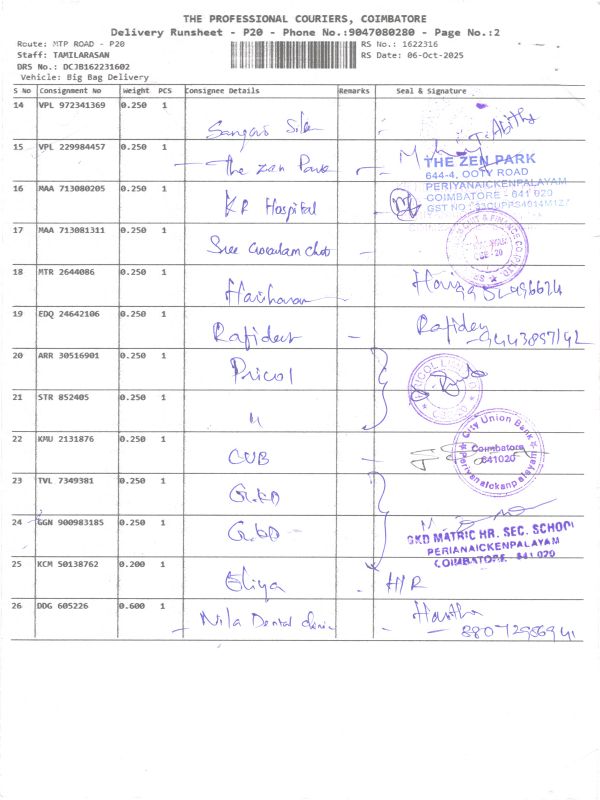 THE PROFESSIONAL COURIERS, COIMBATORE
Delivery Runsheet - P20 - Phone No.:9047080280 - Page No.:2
Route: MTP ROAD - P20 RS No.: 1622316
Staff: TAMILARASAN RS Date: 06-Oct-2025
DRS No.: DCJB162231602
Vehicle: Big Bag Delivery
S No Consignment No Weight PCS Consignee Details Remarks Seal & Signature
14 VPL 972341369 0.250 1
15 VPL 229984457 0.250 1 The Zen Park
THE ZEN PARK
644-4, OOTY ROAD
PERIYANAICKENPALAYAM
COIMBATORE - 641 020
GST NO
16 MAA 713080205 0.250 1 KR Hospital
17 MAA 713081311 0.250 1 Sree
18 MTR 2644086 0.250 1 Hariharan
19 EDQ 24642106 0.250 1
20 ARR 30516901 0.250 1 Pricol
21 STR 852405 0.250 1 "
22 KMU 2131876 0.250 1 CUB
City Union Bank
Coimbatore
641020
Periyanaickenpalayam
23 TVL 7349381 0.250 1 G.K.D
24 GGN 900983185 0.250 1 G.K.D
GKD MATRIC HR. SEC. SCHOOL
PERIANAICKENPALAYAM
COIMBATORE - 641 020
25 KCM 50138762 0.200 1 Eliya H/R
26 DDG 605226 0.600 1 Nila Dental clinic